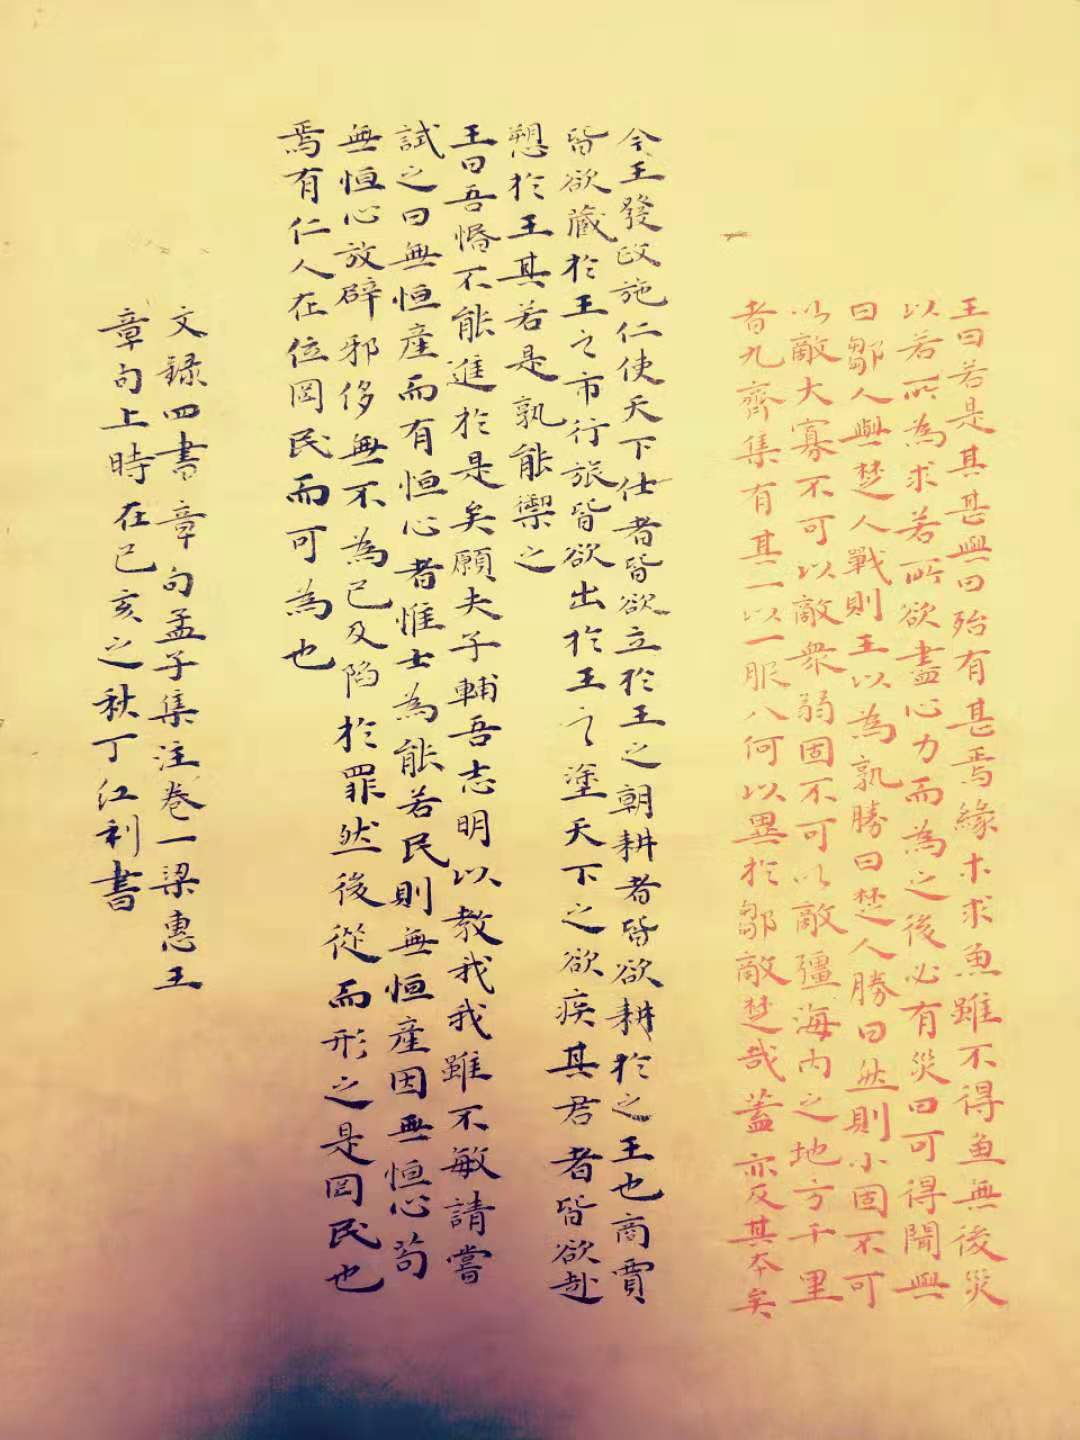 王曰若是其甚與曰殆有甚焉緣木求魚雖不得魚無後災
以若所為求若所欲盡心力而為之後必有災曰可得聞與
曰鄒人與楚人戰則王以為孰勝曰楚人勝曰然則小固不可
以敵大寡不可以敵衆弱固不可以敵彊海內之地方千里
者九齊集有其一以一服八何以異於鄒敵楚哉蓋亦反其本矣
今王發政施仁使天下仕者皆欲立於王之朝耕者皆欲耕於之王也商賈
皆欲藏於王之市行旅皆欲出於王之塗天下之欲疾其君者皆欲赴
愬於王其若是孰能禦之
王曰吾惛不能進於是矣願夫子輔吾志明以教我我雖不敏請嘗
試之曰無恒產而有恒心者惟士為能若民則無恒產因無恒心苟
無恒心放辟邪侈無不為已及陷於罪然後從而形之是罔民也
焉有仁人在位罔民而可為也
文錄四書章句孟子集注卷一梁惠王
章句上時在己亥之秋丁紅利書